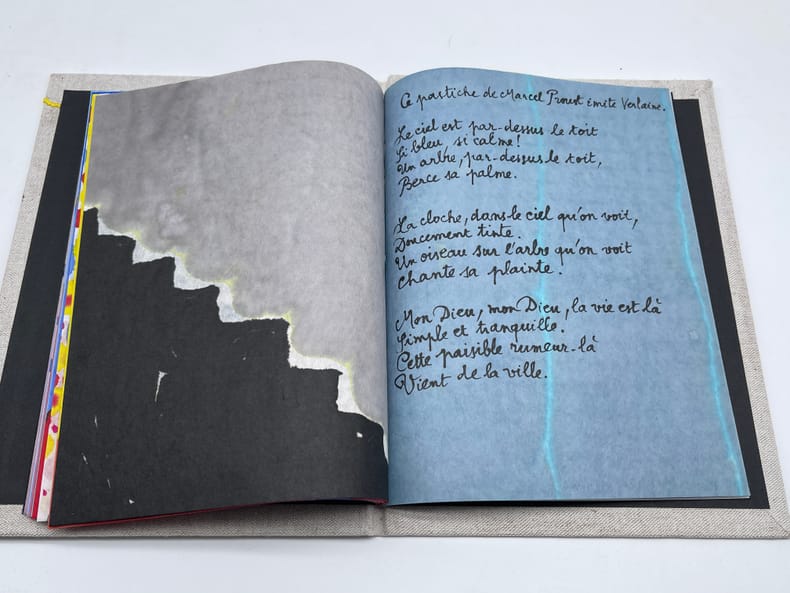 Ce pastiche de Marcel Proust imite Verlaine.
Le ciel est par-dessus le toit
Si bleu, si calme!
Un arbre, par-dessus le toit,
Berce sa palme.
La cloche, dans le ciel qu'on voit,
Doucement tinte.
Un oiseau sur l'arbre qu'on voit
Chante sa plainte.
Mon Dieu, mon Dieu, la vie est là
Simple et tranquille.
Cette paisible rumeur-là
Vient de la ville.